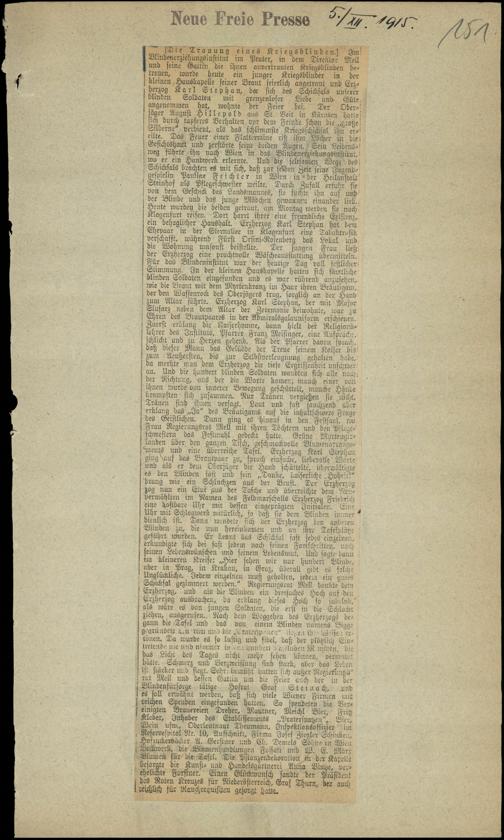 Neue Freie Presse
5./XII. 1915.
151
[Die Trauung eines Kriegsblinden.] Im
Blindenerziehungsinstitut im Prater, in dem Direktor Mell
und seine Gattin die ihnen anvertrauten Kriegsblinden be-
treuen, wurde heute ein junger Kriegsblinder in der
kleinen Hauskapelle seiner Braut feierlich angetraut und Erz-
herzog Karl Stephan, der sich des Schicksals unserer
blinden Soldaten mit grenzenloser Liebe und Güte
angenommen hat, wohnte der Feier bei. Der Ober-
jäger August Hillepold aus St. Veit in Kärnten hatte
sich durch tapferes Verhalten vor dem Feinde schon die „große
Silberne" verdient, als das schlimmste Kriegsschicksal ihn er-
eilte. Das Feuer einer
Geschützart und zerstörte seine beiden Augen. Sein Leidens-
weg führte ihn nach Wien in das Blindenerziehungsinstitut,
wo er ein Handwerk erlernte. Und die seltsamen Wege des
Schicksals brachten es mit sich, daß zur selben Zeit seine Jugend-
gespielin Pauline Feichter in Wien in der Heilanstalt
Steinhof als Pflegeschwester weilte. Durch Zufall erfuhr sie
von dem Geschick des Landsmannes, sie suchte ihn auf und
der Blinde und das junge Mädchen gewannen einander lieb.
Heute wurden die beiden getraut, am Montag werden sie nach
Klagenfurt reisen. Dort harrt ihrer eine freundliche Existenz,
ein behaglicher Haushalt. Erzherzog Karl Stephan hat dem
Ehepaar in der Sterneallee in Klagenfurt eine Tabaktrafik
verschafft, während Fürst Orsini-Rosenberg das Lokal und
die Wohnung umsonst beistellte. Der jungen Frau ließ
der Erzherzog eine prachtvolle Wäscheausstattung übermitteln.
Für das Blindeninstitut war der heutige Tag voll festlicher
Stimmung. In der kleinen Hauskapelle hatten sich sämtliche
blinden Soldaten eingefunden und es war rührend anzusehen,
wie die Braut mit dem Myrtenkranz im Haar ihren Bräutigam,
der den Waffenrock des Oberjägers trug, sorglich an der Hand
zum Altar führte. Erzherzog Karl Stephan, der mit Major
neben dem Altar der Zeremonie beiwohnte, war zu
Ehren des Brautpaares in der Admiralsgalauniform erschienen.
Zuerst erklang die Kaiserhymne, dann hielt der Religions-
lehrer des Instituts, Pfarrer Franz Meisinger, eine Ansprache,
schlicht und zu Herzen gehend. Als der Pfarrer davon sprach,
daß dieser Mann das Gelübde der Treue seinem Kaiser bis
zum Aeußersten, bis zur Selbstverleugnung gehalten habe,
da merkte man dem Erzherzog die tiefe Ergriffenheit unsäglich
an. Und die hundert blinden Soldaten wandten sich alle nach
der Richtung, aus der die Worte kamen; manch einer von
ihnen wurde von innerer Bewegung geschüttelt, manche Hände
krampften sich zusammen. Nur Tränen vergießen sie nicht.
Tränen sind ihnen versagt. Laut und fast jauchzend aber
erklang das „Ja" des Bräutigams auf die inhaltschwere Frage
des Geistlichen. Dann ging es hinaus in den Festsaal, wo
Frau Regierungsrat Mell mit ihren Töchtern und den Pflege-
schwestern das Festmahl gedeckt hatte. Grüne Myrtengir-
landen über den ganzen Tisch, geschmackvolle Blumenarrange-
ments und eine überreiche Tafel. Erzherzog Karl Stephan
ging auf das Brautpaar zu, sprach einfache, liebevolle Worte
und als er dem Oberjäger die Hand schüttelte, überwältigte
es den Blinden fast und sein „Danke, kaiserliche Hoheit"
drang wie ein Schluchzen aus der Brust. Der Erzherzog
zog nun ein Etui aus der Tasche und überreichte dem Neu-
vermählten im Namen des Feldmarschalls Erzherzog Friedrich
eine kostbare Uhr mit dessen eingeprägten Initialen. Eine
Uhr mit Schlagwerk natürlich, so daß sie dem Blinden immer
dienlich ist. Dann wendete sich der Erzherzog den anderen
Blinden zu, die nun hereinkamen und an ihre Tafelplätze
geführt wurden. Er kennt das Schicksal fast jedes einzelnen,
erkundigte sich bei fast jedem nach seinen Fortschritten, nach
seinen Lebenswünschen und seinem Lebensmut. Und sagte dann
im kleineren Kreise: „Hier sehen wir nur hundert Blinde,
aber in Prag, in Krakau, in Graz, überall gibt es solche
Unglückliche. Jedem einzelnen muß geholfen, jedem ein gutes
Schicksal gezimmert werden." Regierungsrat Mell dankte dem
Erzherzog, und als die Blinden ein dreifaches Hoch auf den
Erzherzog ausbrachen, da erklang dieses Hoch so jubelnd,
als wäre es von jungen Soldaten, die erst in die Schlacht
ziehen, ausgerufen. Nach dem Weggehen des Erzherzogs be-
gann die Tafel und das von einem Blinden namens Bigge
tönen. Da wurde es so lustig und fidel, daß der plötzlich Ein-
tretende nie und nimmer in
das Licht des Tages nicht mehr sehen können, vermutet
hätte. Schmerz und Verzweiflung sind stark, aber das Leben
ist stärker und siegt. Sehr bemüht hatten sich außer Regierungs-
rat Mell und dessen Gattin um die Feier auch der in der
Blindenfürsorge tätige Hofrat Graf Steinach, und
es soll erwähnt werden, daß sich viele Wiener Firmen mit
reichen Spenden eingefunden hatten. So spendeten die Ver-
einigten Brauereien Dreher, Mautner, Meichl Bier, Fritz
Kleber, Inhaber des Etablissements „Praterspatzen", Bier,
Wein usw., Oberleutnant Theumann, Inspektionsoffizier im
Reservespital Nr. 10, Aufschnitt, Firma Josef Ziegler Schinken,
Hofzuckerbäcker A. Gerstner und Ch. Demels Söhne in Wien
Backwerk, die Blumenhandlungen Foschati und W. E. Marx
Blumen für die Tafel. Die Pflanzendekoration in der Kapelle
besorgte die Kunst- und Handelsgärtnerei Anna
ehelichte Forstner. Einen Glückwunsch sandte der Präsident
des Roten Kreuzes für Niederösterreich, Graf Thurn, der auch
reichlich für Raucherrequisiten gesorgt hatte.